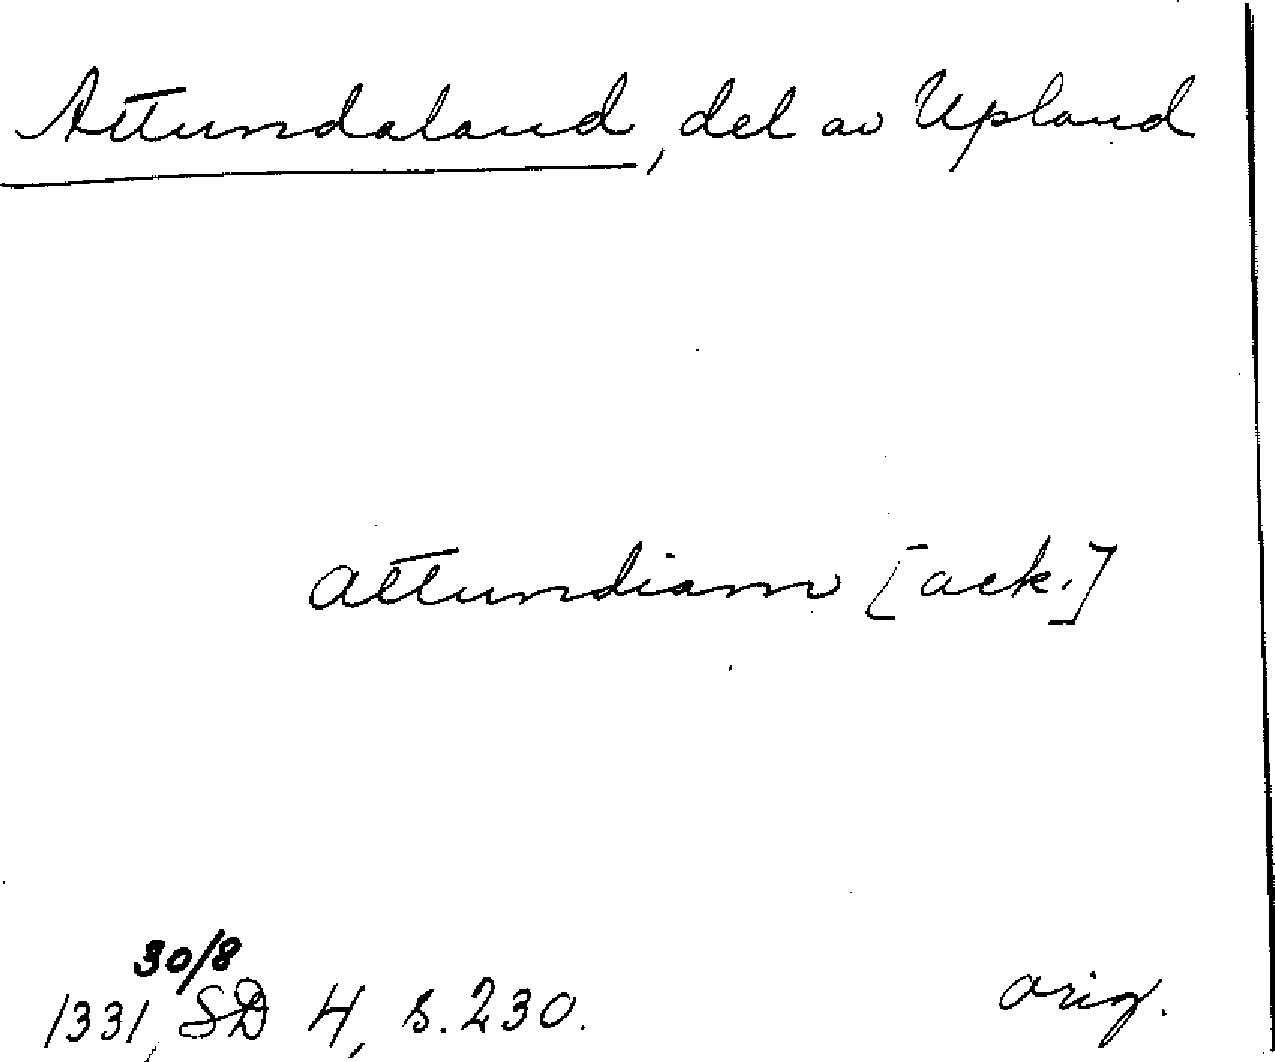 Attundaland, del av Upland
attundiam [ack.]
30/8
1331, SD 4, s. 230.
orig.